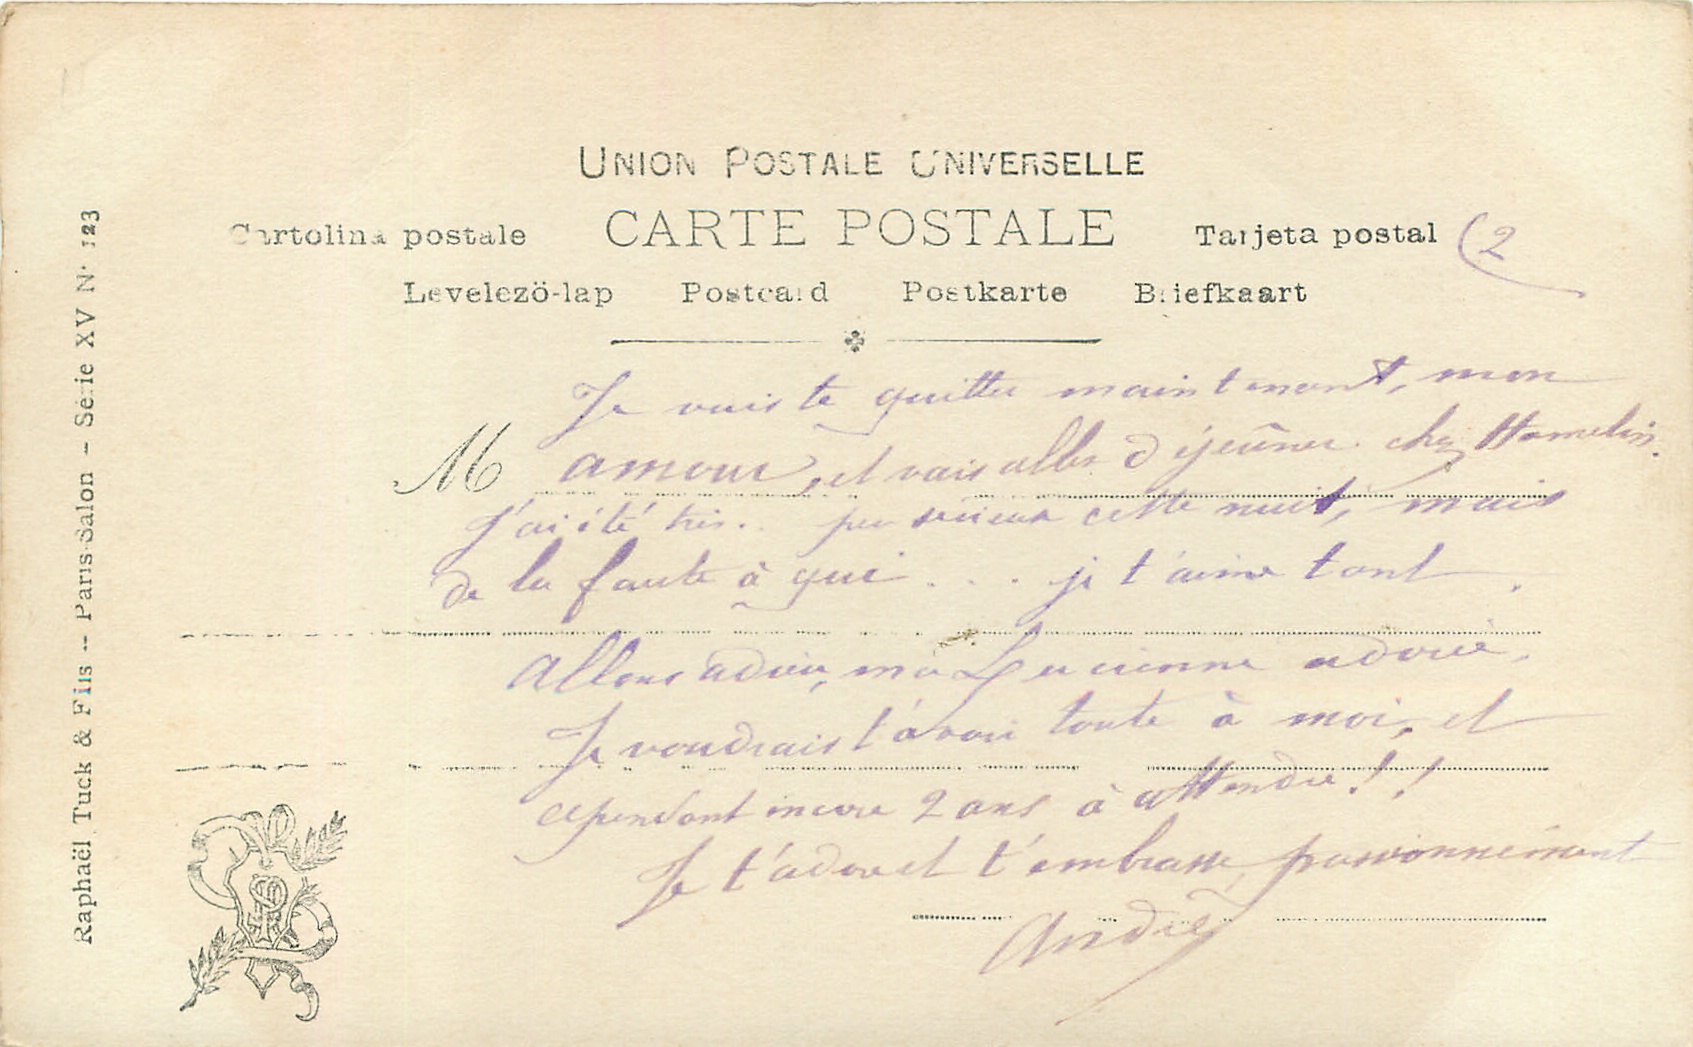 UNION POSTALE UNIVERSELLE
Cartolina postale CARTE POSTALE Tarjeta postal (2
Levelezö-lap Postcard Postkarte Briefkaart
Je vais te quitter maintenant, mon
M amour, et vais aller déjeûner chez Hamelin.
J'ai été très.. peu sérieux cette nuit, mais
de la faute à qui . . . je t'aime tant.
Allons adieu, ma Lucienne adorée,
Je voudrais t'avoir toute à moi, et
cependant encore 2 ans à attendre!!
Je t'adore et t'embrasse passionnément
André
Raphaël Tuck & Fils -- Paris-Salon - Série XV N° 123